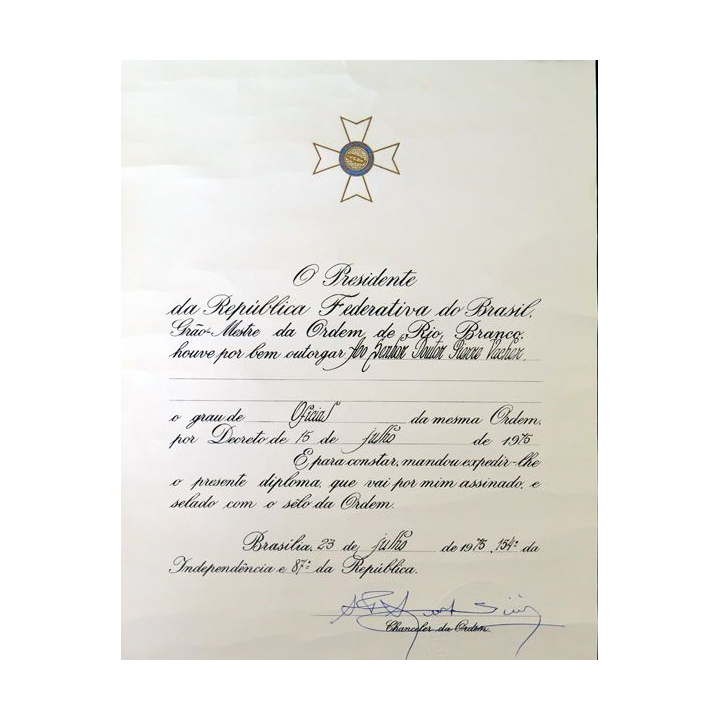 O Presidente
da República Federativa do Brasil,
Grão-Mestre da Ordem de Rio Branco,
houve por bem outorgar Ao Senhor Doutor Pierre Vachon
o grau de Oficial da mesma Ordem,
por Decreto de 15 de julho de 1975
E para constar, mandou expedir-lhe
o presente diploma, que vai por mim assinado, e
selado com o sêlo da Ordem.
Brasília, 23 de julho de 1975, 154º da
Independência e 87º da República.
Chanceler da Ordem